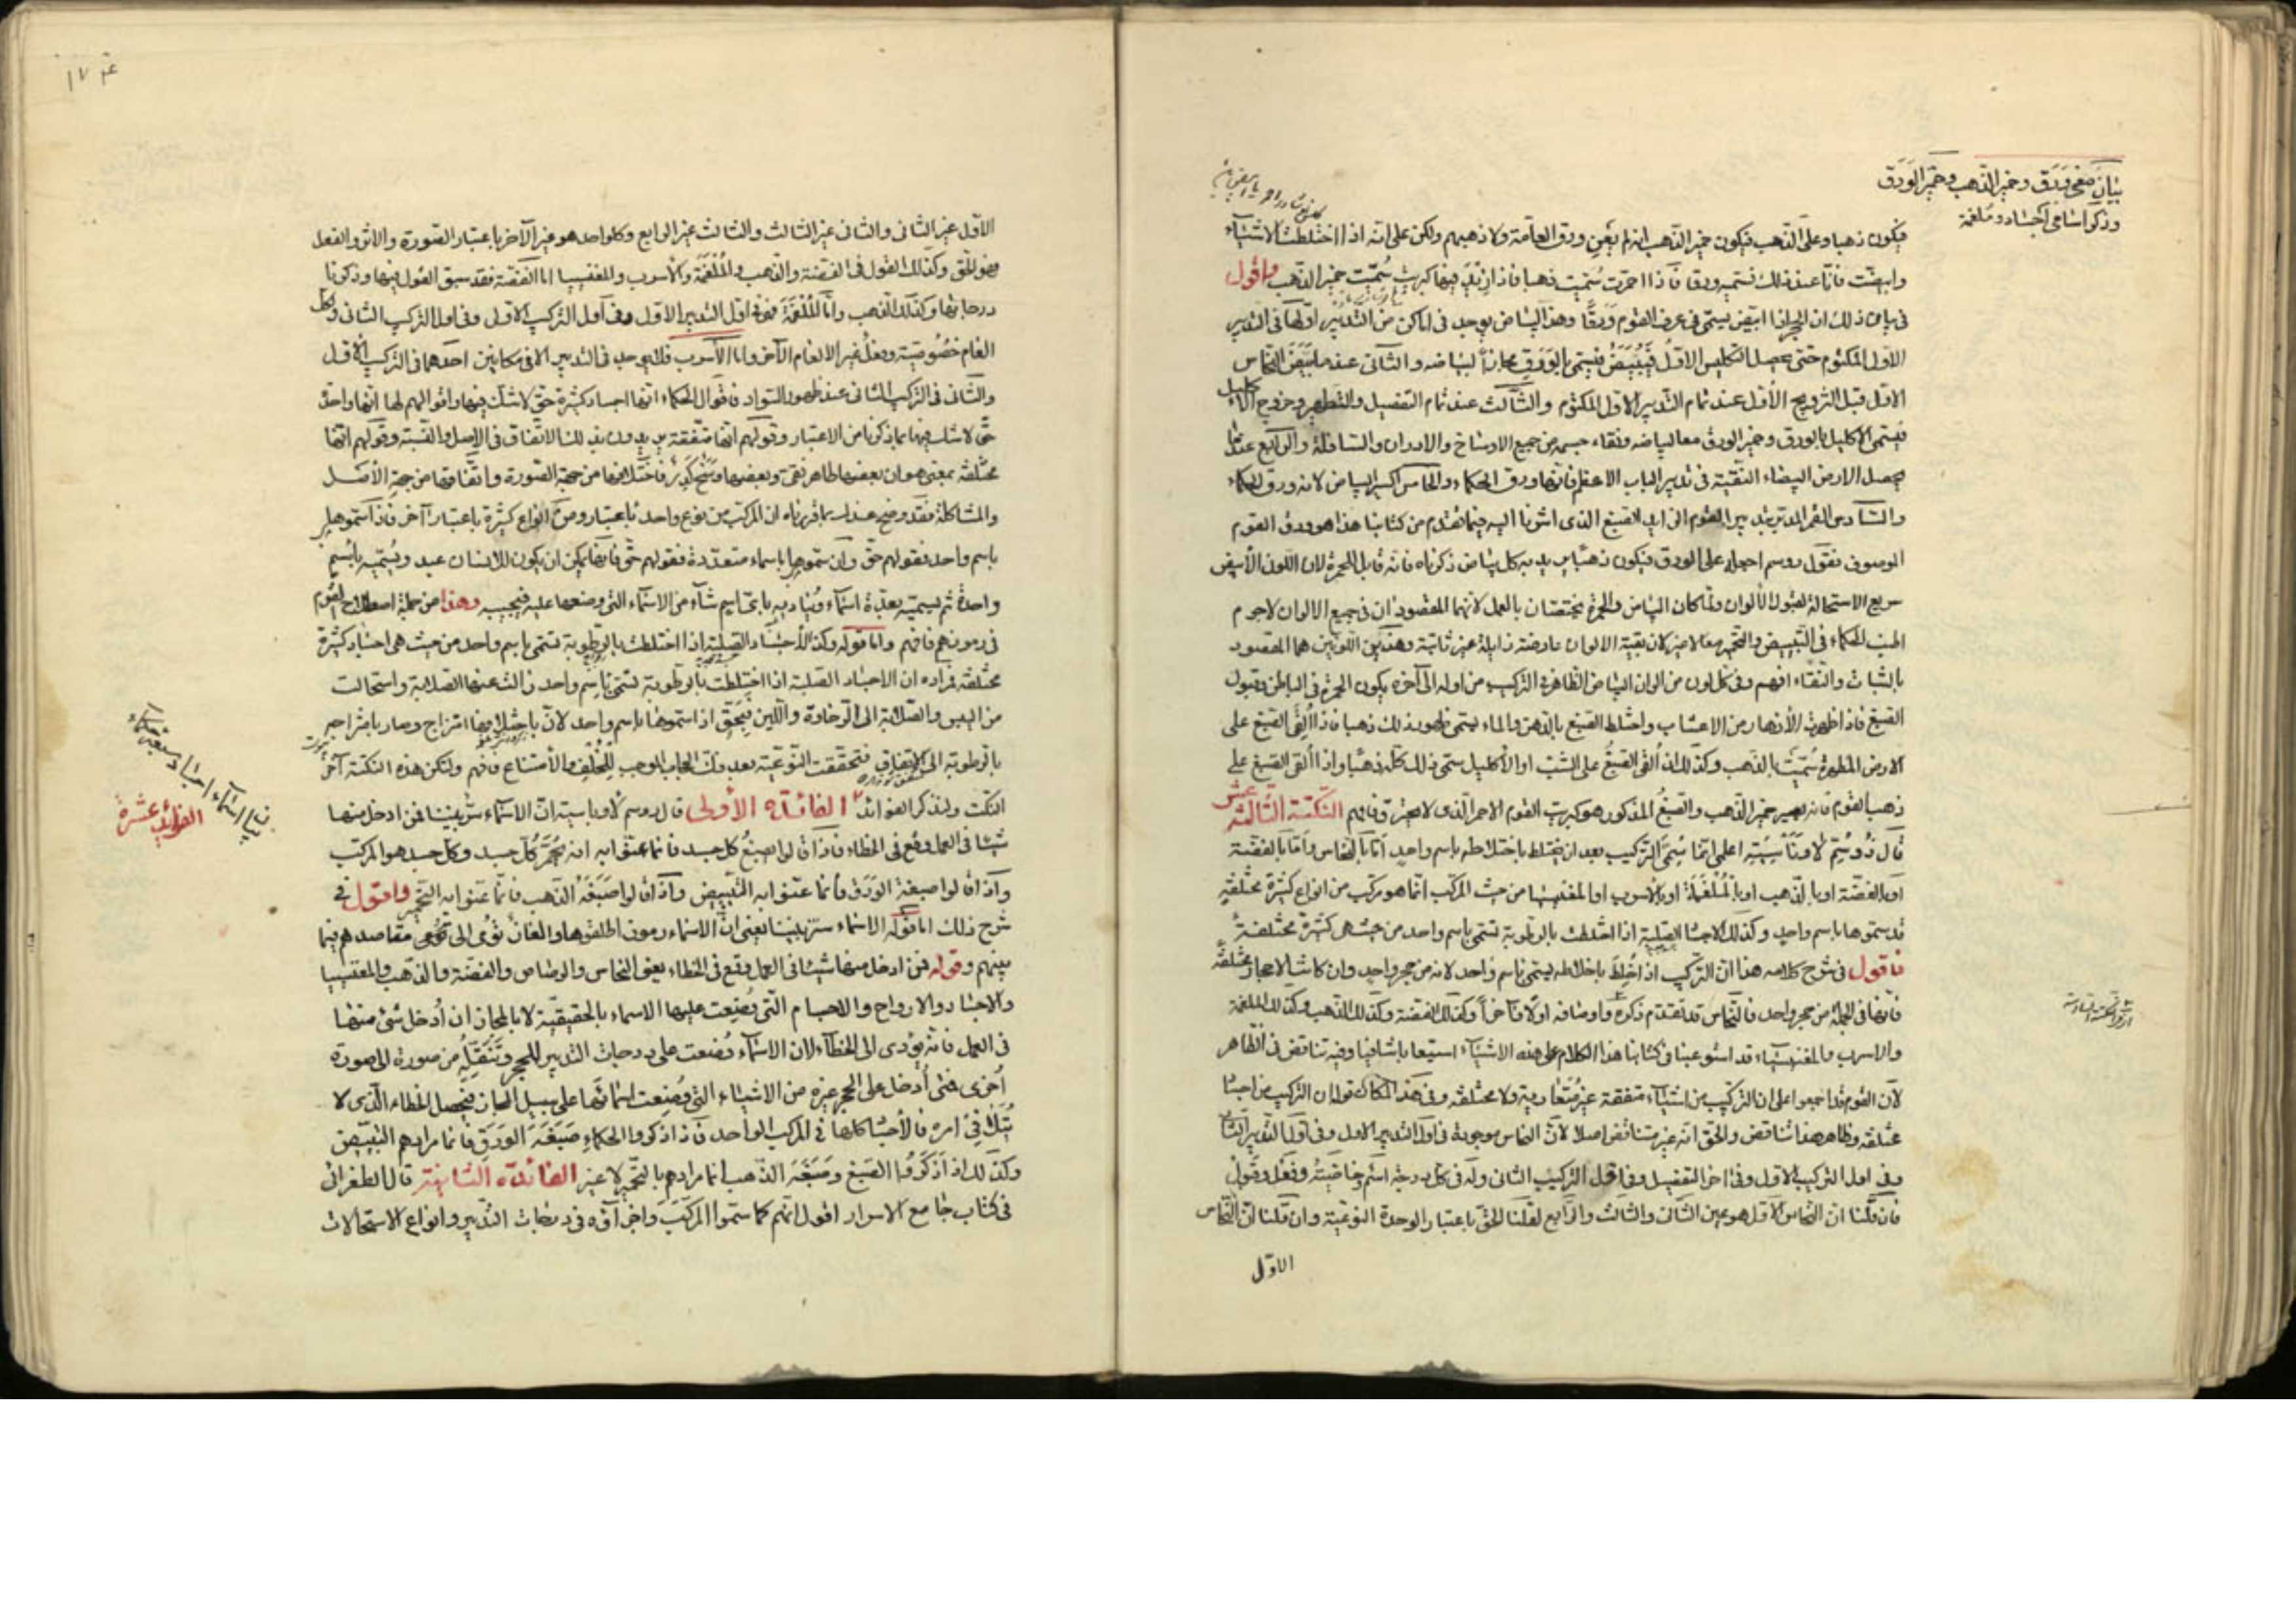 بيان معنى ورق وخمير الذهب وخمير الورق
وذكر اسامي اجساد وملغمة
فيكون ذهبا وعلى الذهب فيكون خمير الذهب انه لم يعن ورق العامة ولا ذهبهم ولكن على انه اذا اختلطت الاشياء
وابيضت فانا عند ذلك نسميه ورقا فاذا احمرت سميت ذهبا فاذا زيد فيها كبريت سميت خمير الذهب واقول
في بيان ذلك ان الحجر اذا ابيض يسمى في عرف القوم ورقا وهذا البياض يوجد في اماكن من التدبير اولها في التدبير
الاول المكتوم حتى يحصل التكليس الاول فيبيض فيسمى بالورق مجازا لبياضه والثاني عند ما يبيض النحاس
الاول قبل التزويج الاول عند تمام التدبير الاول المكتوم والثالث عند تمام التفصيل والتطهير وخروج الاكليل
فيسمى الاكليل بالورق وخمير الورق معا لبياضه ونقاء جسمه من جميع الاوساخ والادران والسافلة والرابع عندما
يحصل الارض البيضاء النقية في تدبير الباب الاعظم فانها ورق الحكماء والخامس اكسير البياض لانه ورق الحكماء
والسادس القمر المدبر بتدبير القوم الى ان الصبغ الذي اشرنا اليه فيما تقدم من كتابنا هذا هو ورق القوم
الموصوف فقول روسم احمله على الورق فيكون ذهبا يريد به كل بياض ذكرناه فانه قابل للحمرة لان اللون الابيض
سريع الاستحالة لقبول الالوان ولما كان البياض والحمرة يختصان بالعمل لانهما المقصودان في جميع الالوان لاجرم
الحكماء في التبييض والتحمير معا لا غير لان بقية الالوان عارضة زايلة غير ثابتة وهذين اللونين هما المقصود
بالثبات والنقاء افهم وفي كل لون من الوان البياض الظاهر في التركيب من اوله الى آخره يكون الحمرة في الباطن وقبول
الصبغ فاذا ظهرت الازهار من الاعشاب واختلط الصبغ بالدهن والماء يسمى ظهور ذلك ذهبا فاذا القي الصبغ على
الارض المطهرة سميت بالذهب وكذلك اذا القي الصبغ على الشب او الاكليل سمى ذلك كله ذهبا واذا القي الصبغ على
ذهب القوم فانه يصير خمير الذهب والصبغ المذكور هو كبريت القوم الاحمر الذي لا يحترق فافهم النكتة الثالثة عشر
قال روسم لاوتاسية اعلمي انما سمي التركيب بعد ان يختلط باختلاطه باسم واحد اما بالنحاس واما بالفضة
او بالفضة او بالذهب او بالملغمة او بالاسرب او المغنيسيا من حيث المركب انما هو مركب من انواع كثيرة مختلفة
قد سموها باسم واحد وكذلك الاجساد الصلبة اذا اختلطت بالرطوبة تسمى باسم واحد من حيث هي كثيرة مختلفة
فاقول في شرح كلامه هذا ان التركيب اذا خلط باخلاطه يسمى باسم واحد لانه من حجر واحد وان كانت الاحجار مختلفة
فانها في الجملة من حجر واحد فالنحاس قد تقدم ذكره واوصافه اولا فآخرا وكذلك الفضة وكذلك الذهب وكذلك الملغمة
والاسرب والمغنيسياء قد استوعبنا في كتابنا هذا الكلام على هذه الاشياء استيعابا شافيا وفيه تناقض في الظاهر
لان القوم قد اجمعوا على ان التركيب من اشياء متفقة غير متعادية ولا مختلفة وفي هذا المكان قولان التركيب من اجساد
مختلفة وظاهر هذا تناقض والحق انه غير متناقض اصلا لان النحاس موجود في اول التدبير الاول وفي اول التدبير الثاني
وفي اول التركيب الاول وفي آخر التفصيل وفي اول التركيب الثاني وله في كل درجة اسم وخاصية وفعل وقبول
فان قلنا ان النحاس الاول هو عين الثاني والثالث والرابع لقلنا الحق باعتبار الوحدة النوعية وان قلنا ان النحاس
الاول
الاول غير الثاني والثاني غير الثالث والثالث غير الرابع وكل واحد هو غير الآخر باعتبار الصورة والاثر والفعل
فهو الحق وكذلك القول في الفضة والذهب والملغمة والاسرب والمغنيسيا اما الفضة فقد سبق القول فيها وذكرنا
درجاتها وكذلك الذهب واما الملغمة فهو في اول التدبير الاول وفي اول التركيب الاول وفي اول التركيب الثاني ولكل
الغام خصوصية وفعل غير الالغام الآخر واما الاسرب فلا يوجد في التدبير الا في مكانين احدهما في التركيب الاول
والثاني في التركيب الثاني عند ظهور السواد فاقوال الحكماء انها اجساد كثيرة حق لا شك فيها واقوالهم لها انها واحدة
حق لا شك فيها بما ذكرنا من الاعتبار وقولهم انها متفقة يريدون بذلك الاتفاق في الاصل والنسبة وقولهم انها
مختلفة بمعنى هو ان بعضها طاهر نقي وبعضها وسخ كدر فاختلافها من جهة الصورة واتفاقها من جهة الاصل
والمشاكلة فقد وضح عندك بما قررناه ان المركب من نوع واحد باعتبار ومن انواع كثيرة باعتبار آخر فاذا سموها
باسم واحد فقولهم حق وان سموها باسماء متعددة فقولهم حق فانه يمكن ان يكون للانسان عبد ويسميه باسم
واحدة ثم يسميه بعدة اسماء ويناديه باي اسم شاء من الاسماء التي وضعها عليه فيجيبه وهذا من جملة اصطلاح القوم
في رموزهم فافهم واما قوله وكذلك الاجساد الصلبة اذا اختلطت بالرطوبة تسمى باسم واحد من حيث هي اجساد كثيرة
مختلفة فمراده ان الاجساد الصلبة اذا اختلطت بالرطوبة تسمى باسم واحد زالت عنها الصلابة واستحالت
من اليبس والصلابة الى الرخاوة واللين فبحق اذا سموها باسم واحد لان باختلاطها امتزاج وصار
بالرطوبة الى الاتفاق فتحققت النوعية بعد ذلك الموجب للتخلف والامتناع فافهم ولتكن هذه النكتة آخر
النكت ولنذكر الفوائد الفائدة الاولى قال روسم لاوتاسية ان الاسماء ستر بيننا فمن ادخل منها
شيئا في العمل وقع في الخطاء فاذا قالوا صبغ كل جسد فانما عنوا به انه حمر كل جسد وكل جسد هو المركب
واذا قالوا صبغة الورق فانما عنوا به التبييض واذا قالوا صبغة الذهب فانما عنوا به التحمير واقول في
شرح ذلك اما قوله الاسماء ستر بيننا يعني ان الاسماء رموز اطلقوها والغاز تؤدى الى مقاصدهم فيما
بينهم وقوله فمن ادخل منها شيئا في العمل وقع في الخطاء يعني النحاس والرصاص والفضة والذهب والمغنيسيا
والاجساد والارواح والاجسام التي وضعت عليها الاسماء بالحقيقية لا بالمجاز ان ادخل شئ منها
في العمل فانه يؤدى الى الخطاء لان الاسماء وضعت على درجات التدبير للحجر وتنقله من صورة الى صورة
اخرى فمتى ادخل على الحجر غيره من الاشياء التي وضعت اسمائها على سبيل المجاز فيحصل الخطاء الذي لا
يتلافى امره فالاجساد كلها في المركب الواحد فاذا ذكروا الحكماء صبغة الورق فانما مرادهم التبييض
وكذلك اذا ذكروا الصبغ وصبغة الذهب انما مرادهم بالتحمير لا غير الفائدة الثانية قال الطغرائي
في كتاب جامع الاسرار اقول انهم كما سموا المركب واجزاؤه في درجات التدبير وانواع الاستحالات
بيان اسماء اجساد
الفوائد عشرة